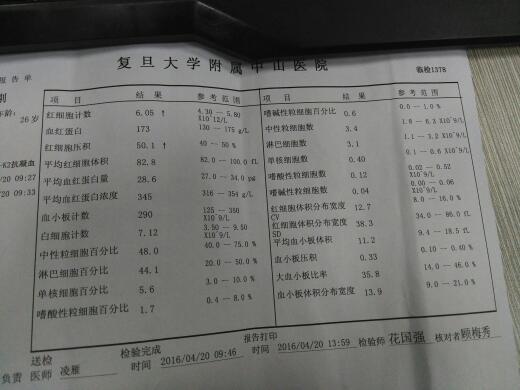 复旦大学附属中山医院
临检1378
报告单
年龄:
26岁
-K2抗凝血
/20 09:27
/20 09:33
项目 结果 参考范围
红细胞计数 6.05 ↑ 4.30 -- 5.80 X10^12/L
血红蛋白 173 130 -- 175 g/L
红细胞压积 50.1 ↑ 40 -- 50 %
平均红细胞体积 82.8 82.0 -- 100.0 fL
平均血红蛋白量 28.6 27.0 -- 34.0 pg
平均血红蛋白浓度 345 316 -- 354 g/L
血小板计数 290 125 -- 350 X10^9/L
白细胞计数 7.12 3.50 -- 9.50 X10^9/L
中性粒细胞百分比 48.0 40.0 -- 75.0 %
淋巴细胞百分比 44.1 20.0 -- 50.0 %
单核细胞百分比 5.6 3.0 -- 10.0 %
嗜酸性粒细胞百分比 1.7 0.4 -- 8.0 %
项目 结果 参考范围
嗜碱性粒细胞百分比 0.6 0.0 -- 1.0 %
中性粒细胞数 3.4 1.8 -- 6.3 X10^9/L
淋巴细胞数 3.1 1.1 -- 3.2 X10^9/L
单核细胞数 0.40 0.1 -- 0.6 X10^9/L
嗜酸性粒细胞数 0.12 0.02 -- 0.52 X10^9/L
嗜碱性粒细胞数 0.04 0.00 -- 0.06 X10^9/L
红细胞体积分布宽度CV 12.7 8.0 -- 16.0 %
红细胞体积分布宽度SD 38.3 34.0 -- 86.0 fL
平均血小板体积 11.2 9.4 -- 18.5 fL
血小板压积 0.33 0.10 -- 0.40 %
大血小板比率 35.8 14.0 -- 46.0 %
血小板体积分布宽度 13.9 9.0 -- 21.0 %
负责 送检医师 凌雁 检验完成时间 2016/04/20 09:46 报告打印时间 2016/04/20 13:59 检验师 花国强 核对者 顾梅秀